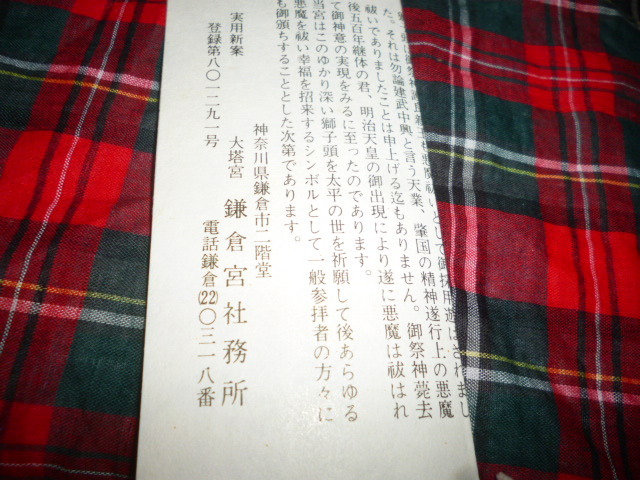 悪魔祓いとして御採用遊ばされまし
た。それは勿論建武中興と言う天業、肇国の精神遂行上の悪魔
祓いでありましたことは申上げる迄もありません。御祭神薨去
後五百年継体の君、明治天皇の御出現により遂に悪魔は祓はれ
て御神意の実現をみるに至ったのであります。
当宮はこのゆかり深い獅子頭を太平の世を祈願して後あらゆる
悪魔を祓い幸福を招来するシンボルとして一般参拝者の方々に
も御頒ちすることとした次第であります。
神奈川県鎌倉市二階堂
大塔宮 鎌倉宮社務所
電話鎌倉(22)〇三一八番
実用新案
登録第八〇一二九一号